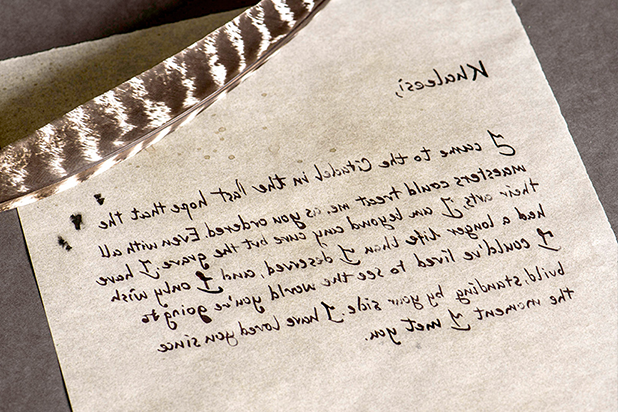 Khaleesi,
I came to the Citadel in the last hope that the
maesters could treat me, as you ordered. Even with all
their arts, I am beyond any cure but the grave. I have
had a longer life than I deserved, and, I only wish
I could've lived to see the world you're going to
build, standing by your side. I have loved you since
the moment I met you.